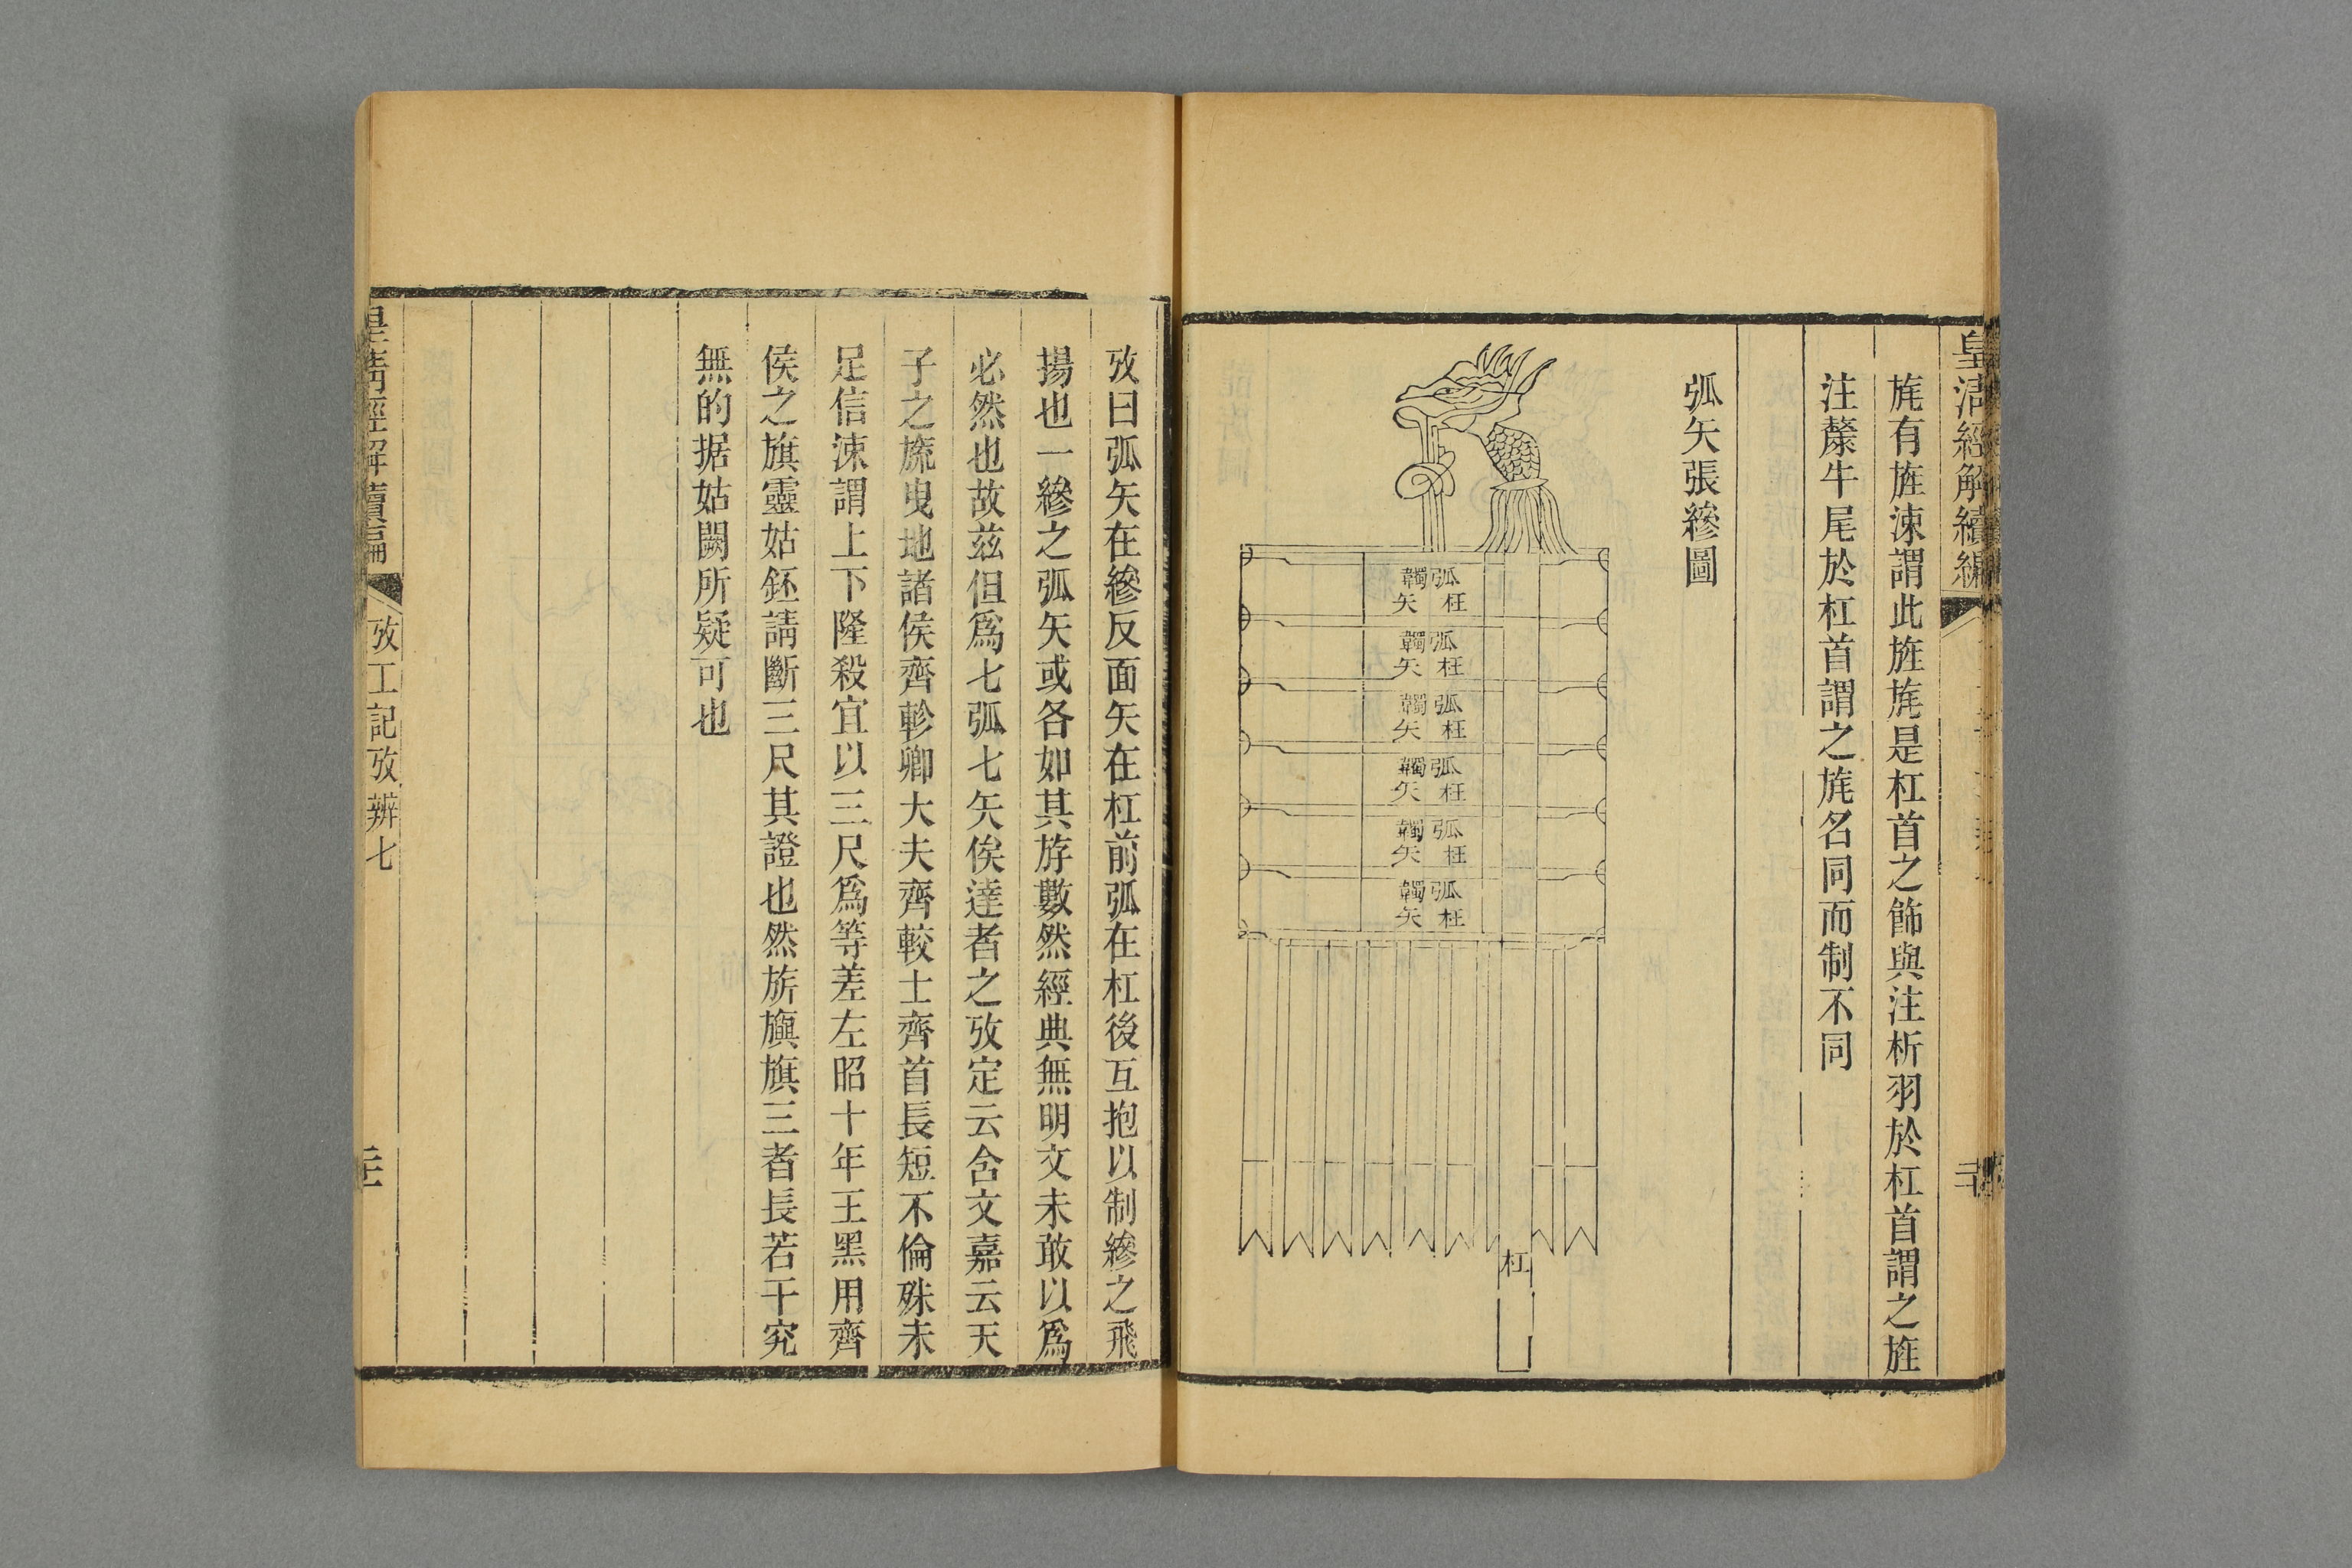 皇清經解續編
旄有旌涑謂此旌旄是杠首之飾與注析羽於杠首謂之旌
注氂牛尾於杠首謂之旄名同而制不同
弧矢張縿圖
弧韣
枉矢
弧韣
枉矢
弧韣
枉矢
弧韣
枉矢
弧韣
枉矢
弧韣
枉矢
杠
攷曰弧矢在縿反面矢在杠前弧在杠後互抱以制縿之飛
揚也一縿之弧矢或各如其斿數然經典無明文未敢以爲
必然也故兹但爲七弧七矢俟達者之攷定云含文嘉云天
子之旒曳地諸侯齊軫卿大夫齊較士齊首長短不倫殊未
足信涑謂上下隆殺宜以三尺爲等差左昭十年王黑用齊
侯之旗靈姑銔請斷三尺其證也然旂旟旗三者長若干究
無的据姑闕所疑可也
皇清經解續編
攷工記攷辨七